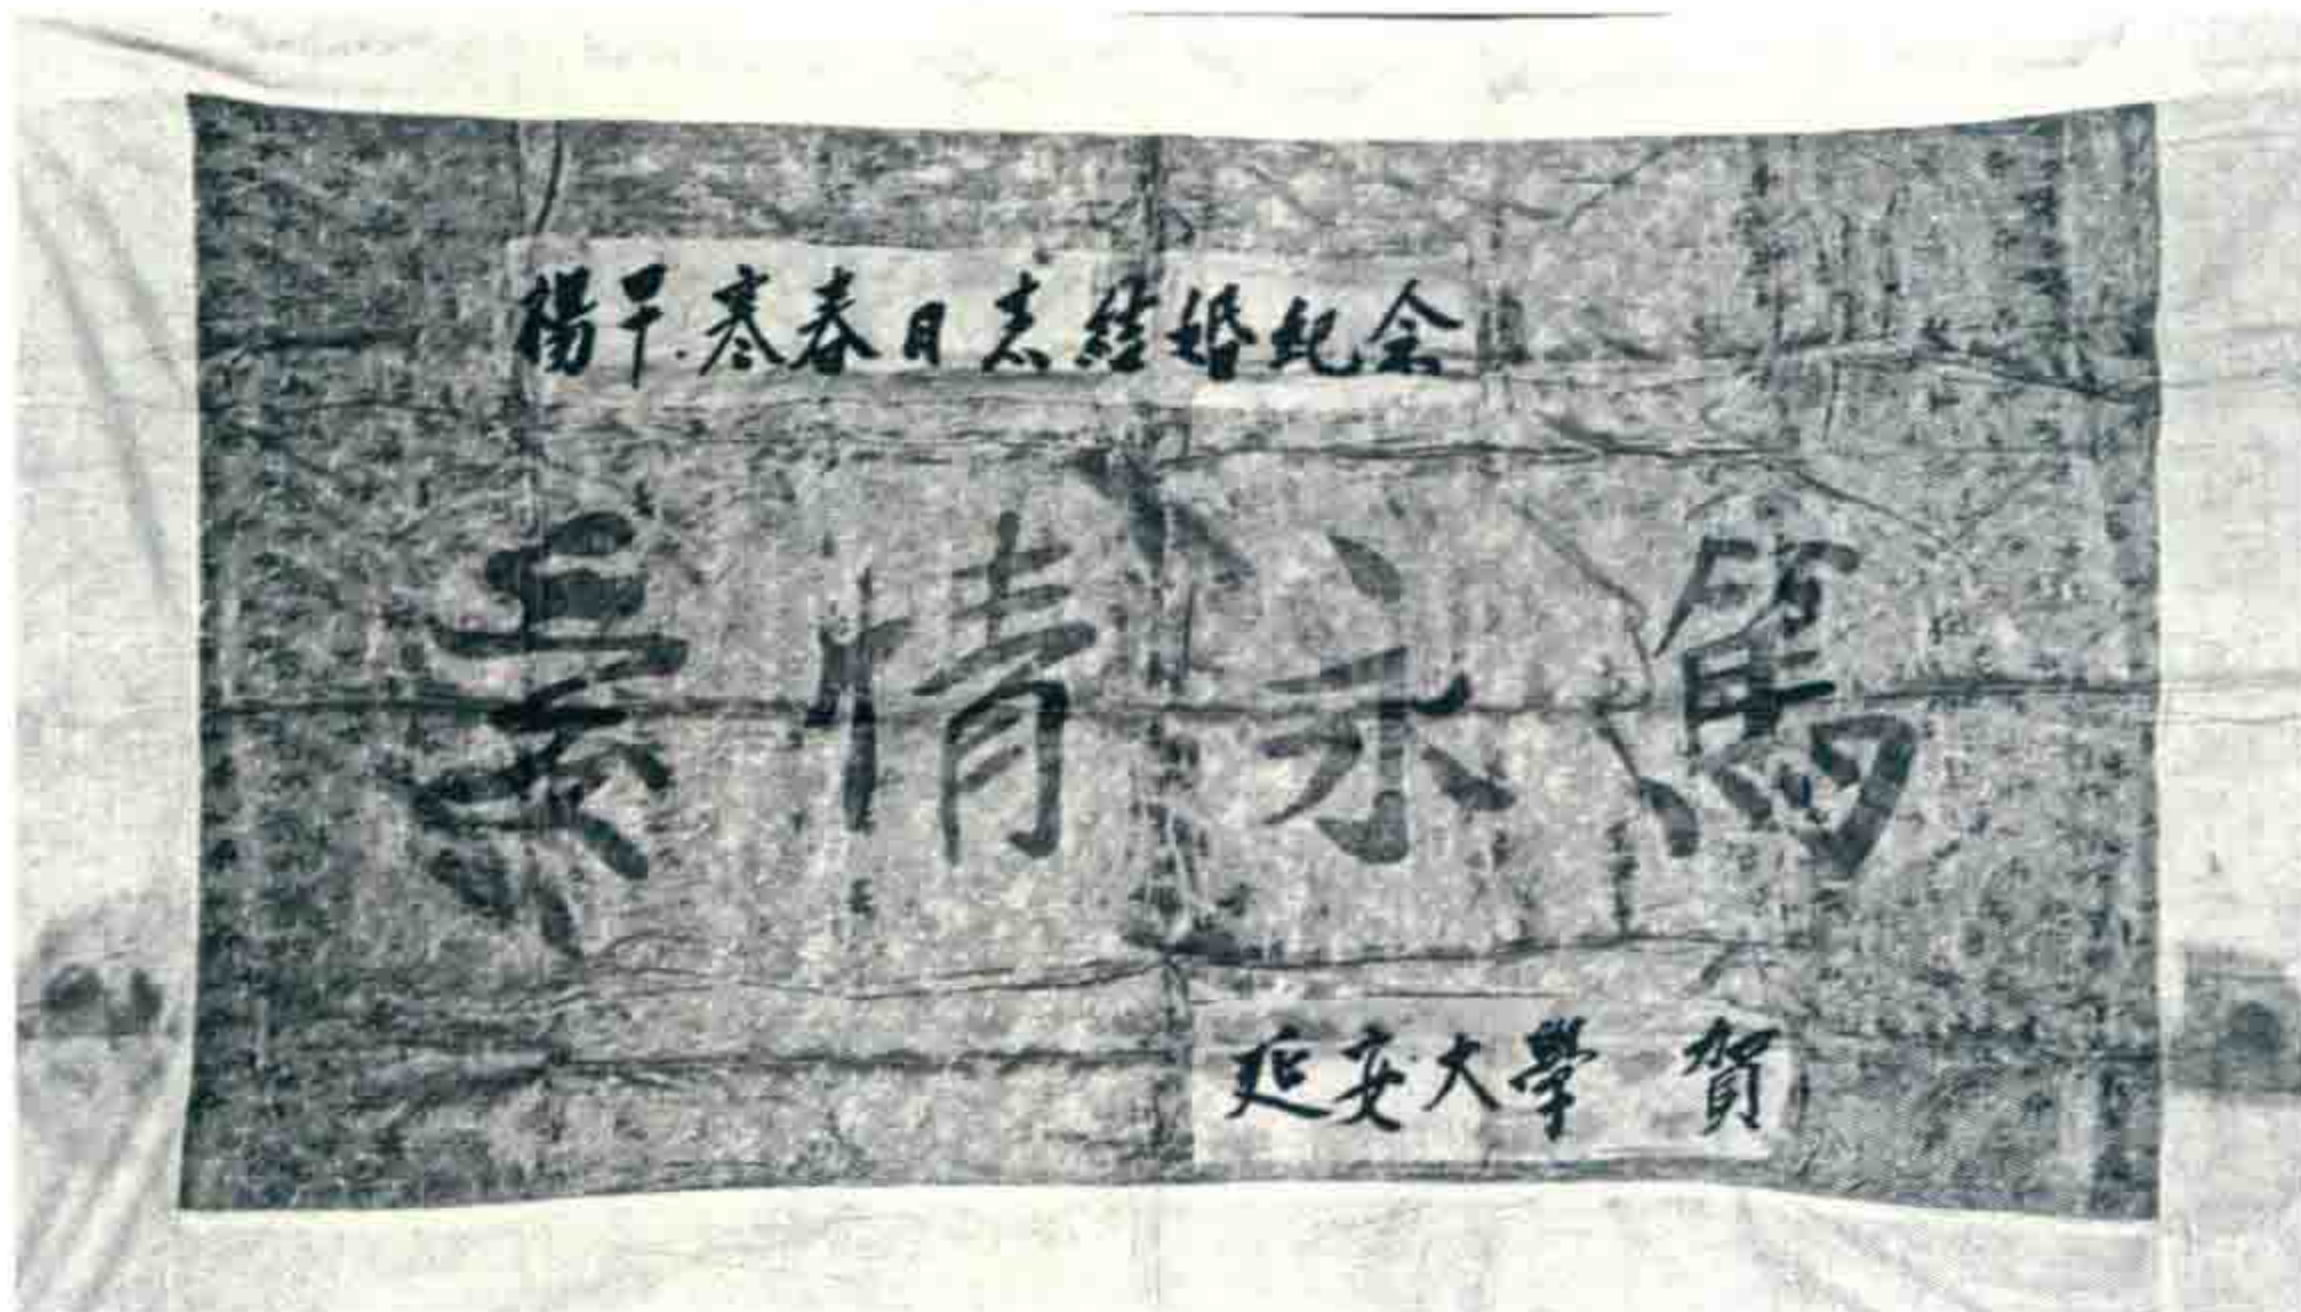 楊早.寒春同志結婚紀念
愛情永篤
延安大學 賀